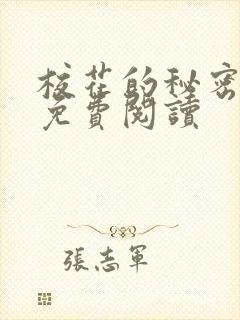 校花的秘密
免費閱讀
張志軍